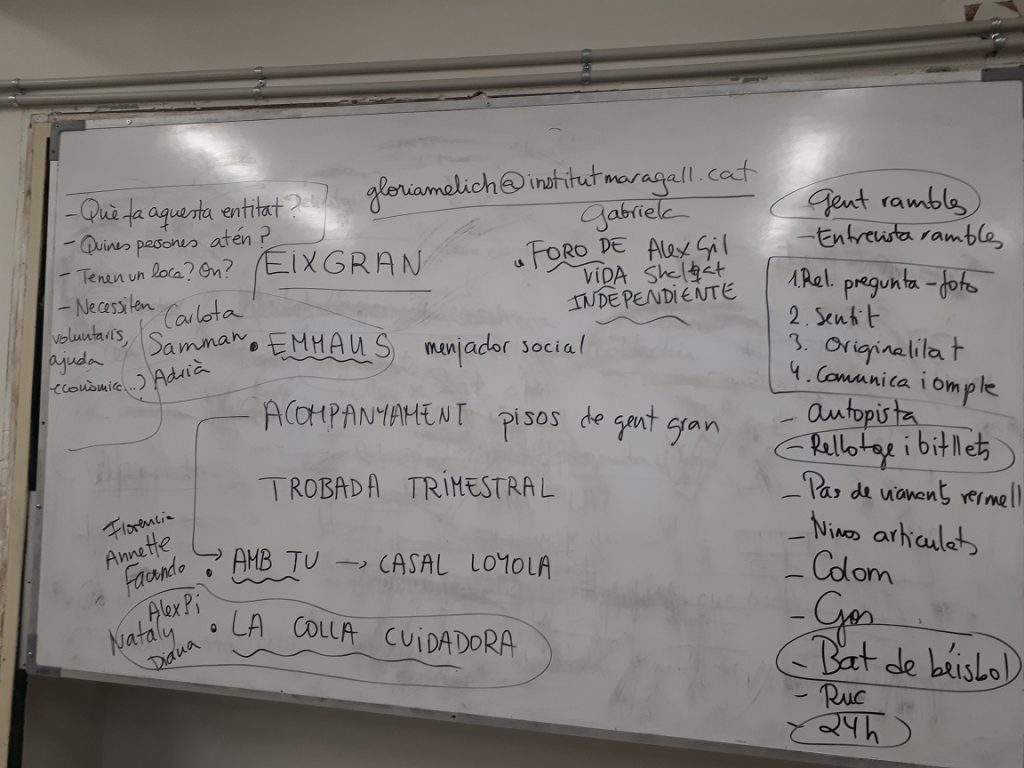 gloriamelich@institutmaragall.cat
- Què fa aquesta entitat?
- Quines persones atén?
- Tenen un loca? On?
- Necessiten
voluntaris,
ajuda
econòmica...)
EIXGRAN
Gabriele
. FORO DE Alex Gil
VIDA
INDEPENDIENTE
Carlota
Samman
Adrià
• EMMAUS menjador social
ACOMPANYAMENT pisos de gent gran
TROBADA TRIMESTRAL
Florencia
Annette
Facundo
• AMB TU → CASAL LOYOLA
Alex Pi
Nataly
Diana
• LA COLLA CUIDADORA
Gent rambles
- Entrevista rambles
1. Rel. pregunta - foto
2. Sentit
3. Originalilat
4. Comunica i omple
- Autopista
- Rellotge i bitllets
- Pas de vianants vermell
- Ninos articulats
- Colom
- Gos
- Bat de béisbol
- Ruc
- 24h